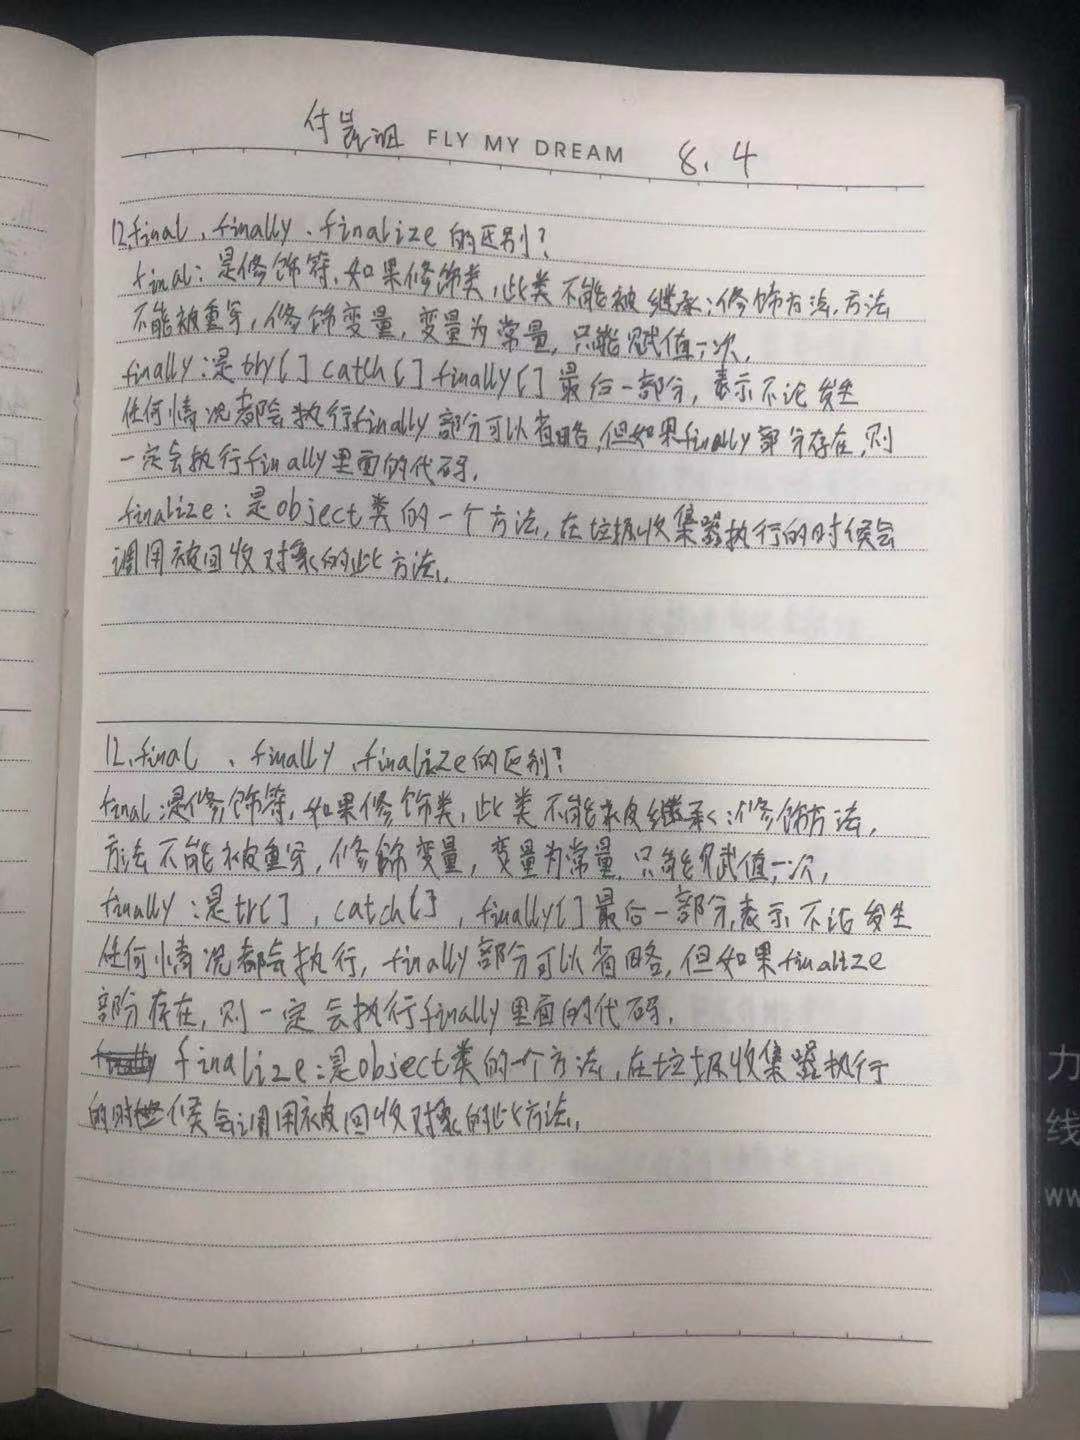 付 FLY MY DREAM 8.4
12.final、finally、finalize的区别?
final:是修饰符,如果修饰类,此类不能被继承;修饰方法,方法
不能被重写,修饰变量,变量为常量,只能赋值一次.
finally:是try[] catch[] finally[]最后一部分,表示不论发生
任何情况都会执行finally部分可以省略,但如果finally部分存在,则
一定会执行finally里面的代码.
finalize:是object类的一个方法,在垃圾收集器执行的时候会
调用被回收对象的此方法.
12.final、finally、finalize的区别?
final:是修饰符,如果修饰类,此类不能被继承;修饰方法,
方法不能被重写,修饰变量,变量为常量,只能赋值一次,
finally:是tr[],catch[],finally[]最后一部分,表示不论发生
任何情况都会执行,finally部分可以省略,但如果finalize
部分存在,则一定会执行finally里面的代码.
finalize:是object类的一个方法,在垃圾收集器执行
的时候会调用被回收对象的此方法.
力
线
ww